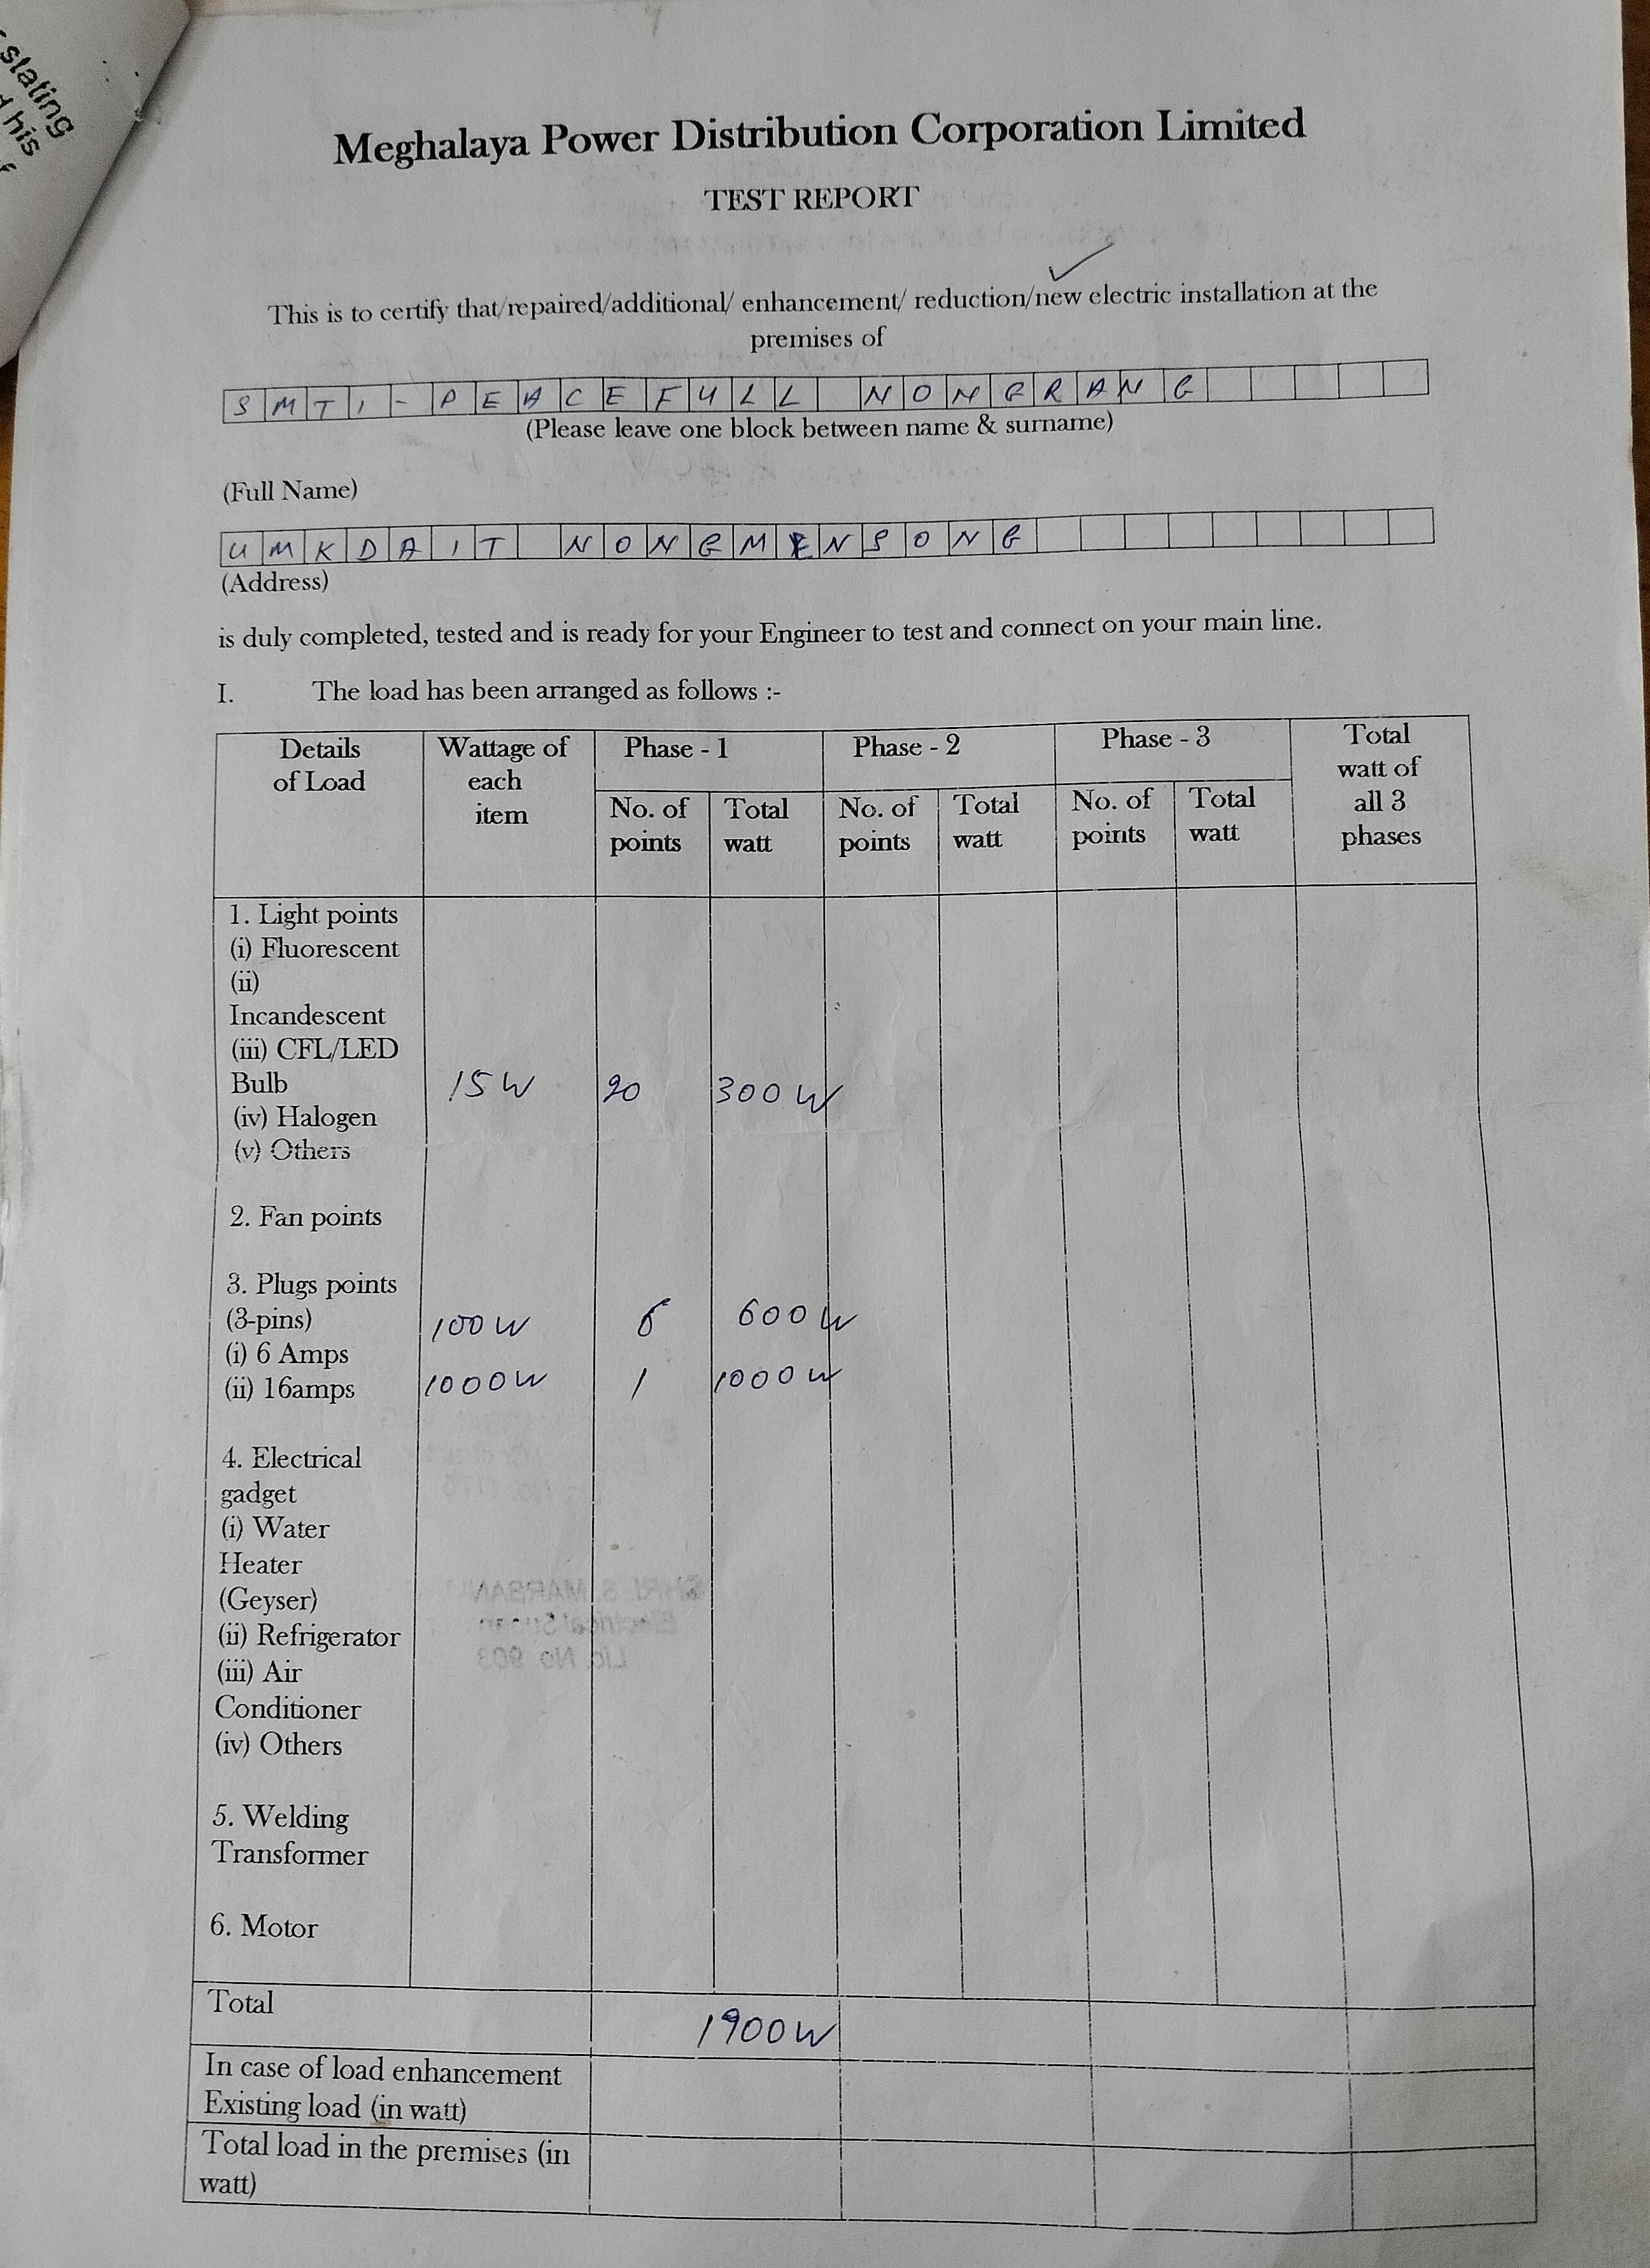 stating
his
Meghalaya Power Distribution Corporation Limited
TEST REPORT
This is to certify that/repaired/additional/ enhancement/ reduction/new electric installation at the
premises of
SMTI - PEACEFULL NONGRANG
(Please leave one block between name & surname)
(Full Name)
UMKDAIT NONGMENSONG
(Address)
is duly completed, tested and is ready for your Engineer to test and connect on your main line.
I. The load has been arranged as follows :-
Details of Load
Wattage of each item
Phase - 1
Phase - 2
Phase - 3
Total watt of all 3 phases
No. of points
Total watt
No. of points
Total watt
No. of points
Total watt
1. Light points
(i) Fluorescent
(ii)
Incandescent
(iii) CFL/LED
Bulb 15W 20 300W
(iv) Halogen
(v) Others
2. Fan points
3. Plugs points
(3-pins) 100W 6 600W
(i) 6 Amps
(ii) 16amps 1000W 1 1000W
4. Electrical
gadget
(i) Water
Heater
(Geyser)
(ii) Refrigerator
(iii) Air
Conditioner
(iv) Others
5. Welding
Transformer
6. Motor
Total 1900W
In case of load enhancement
Existing load (in watt)
Total load in the premises (in
watt)